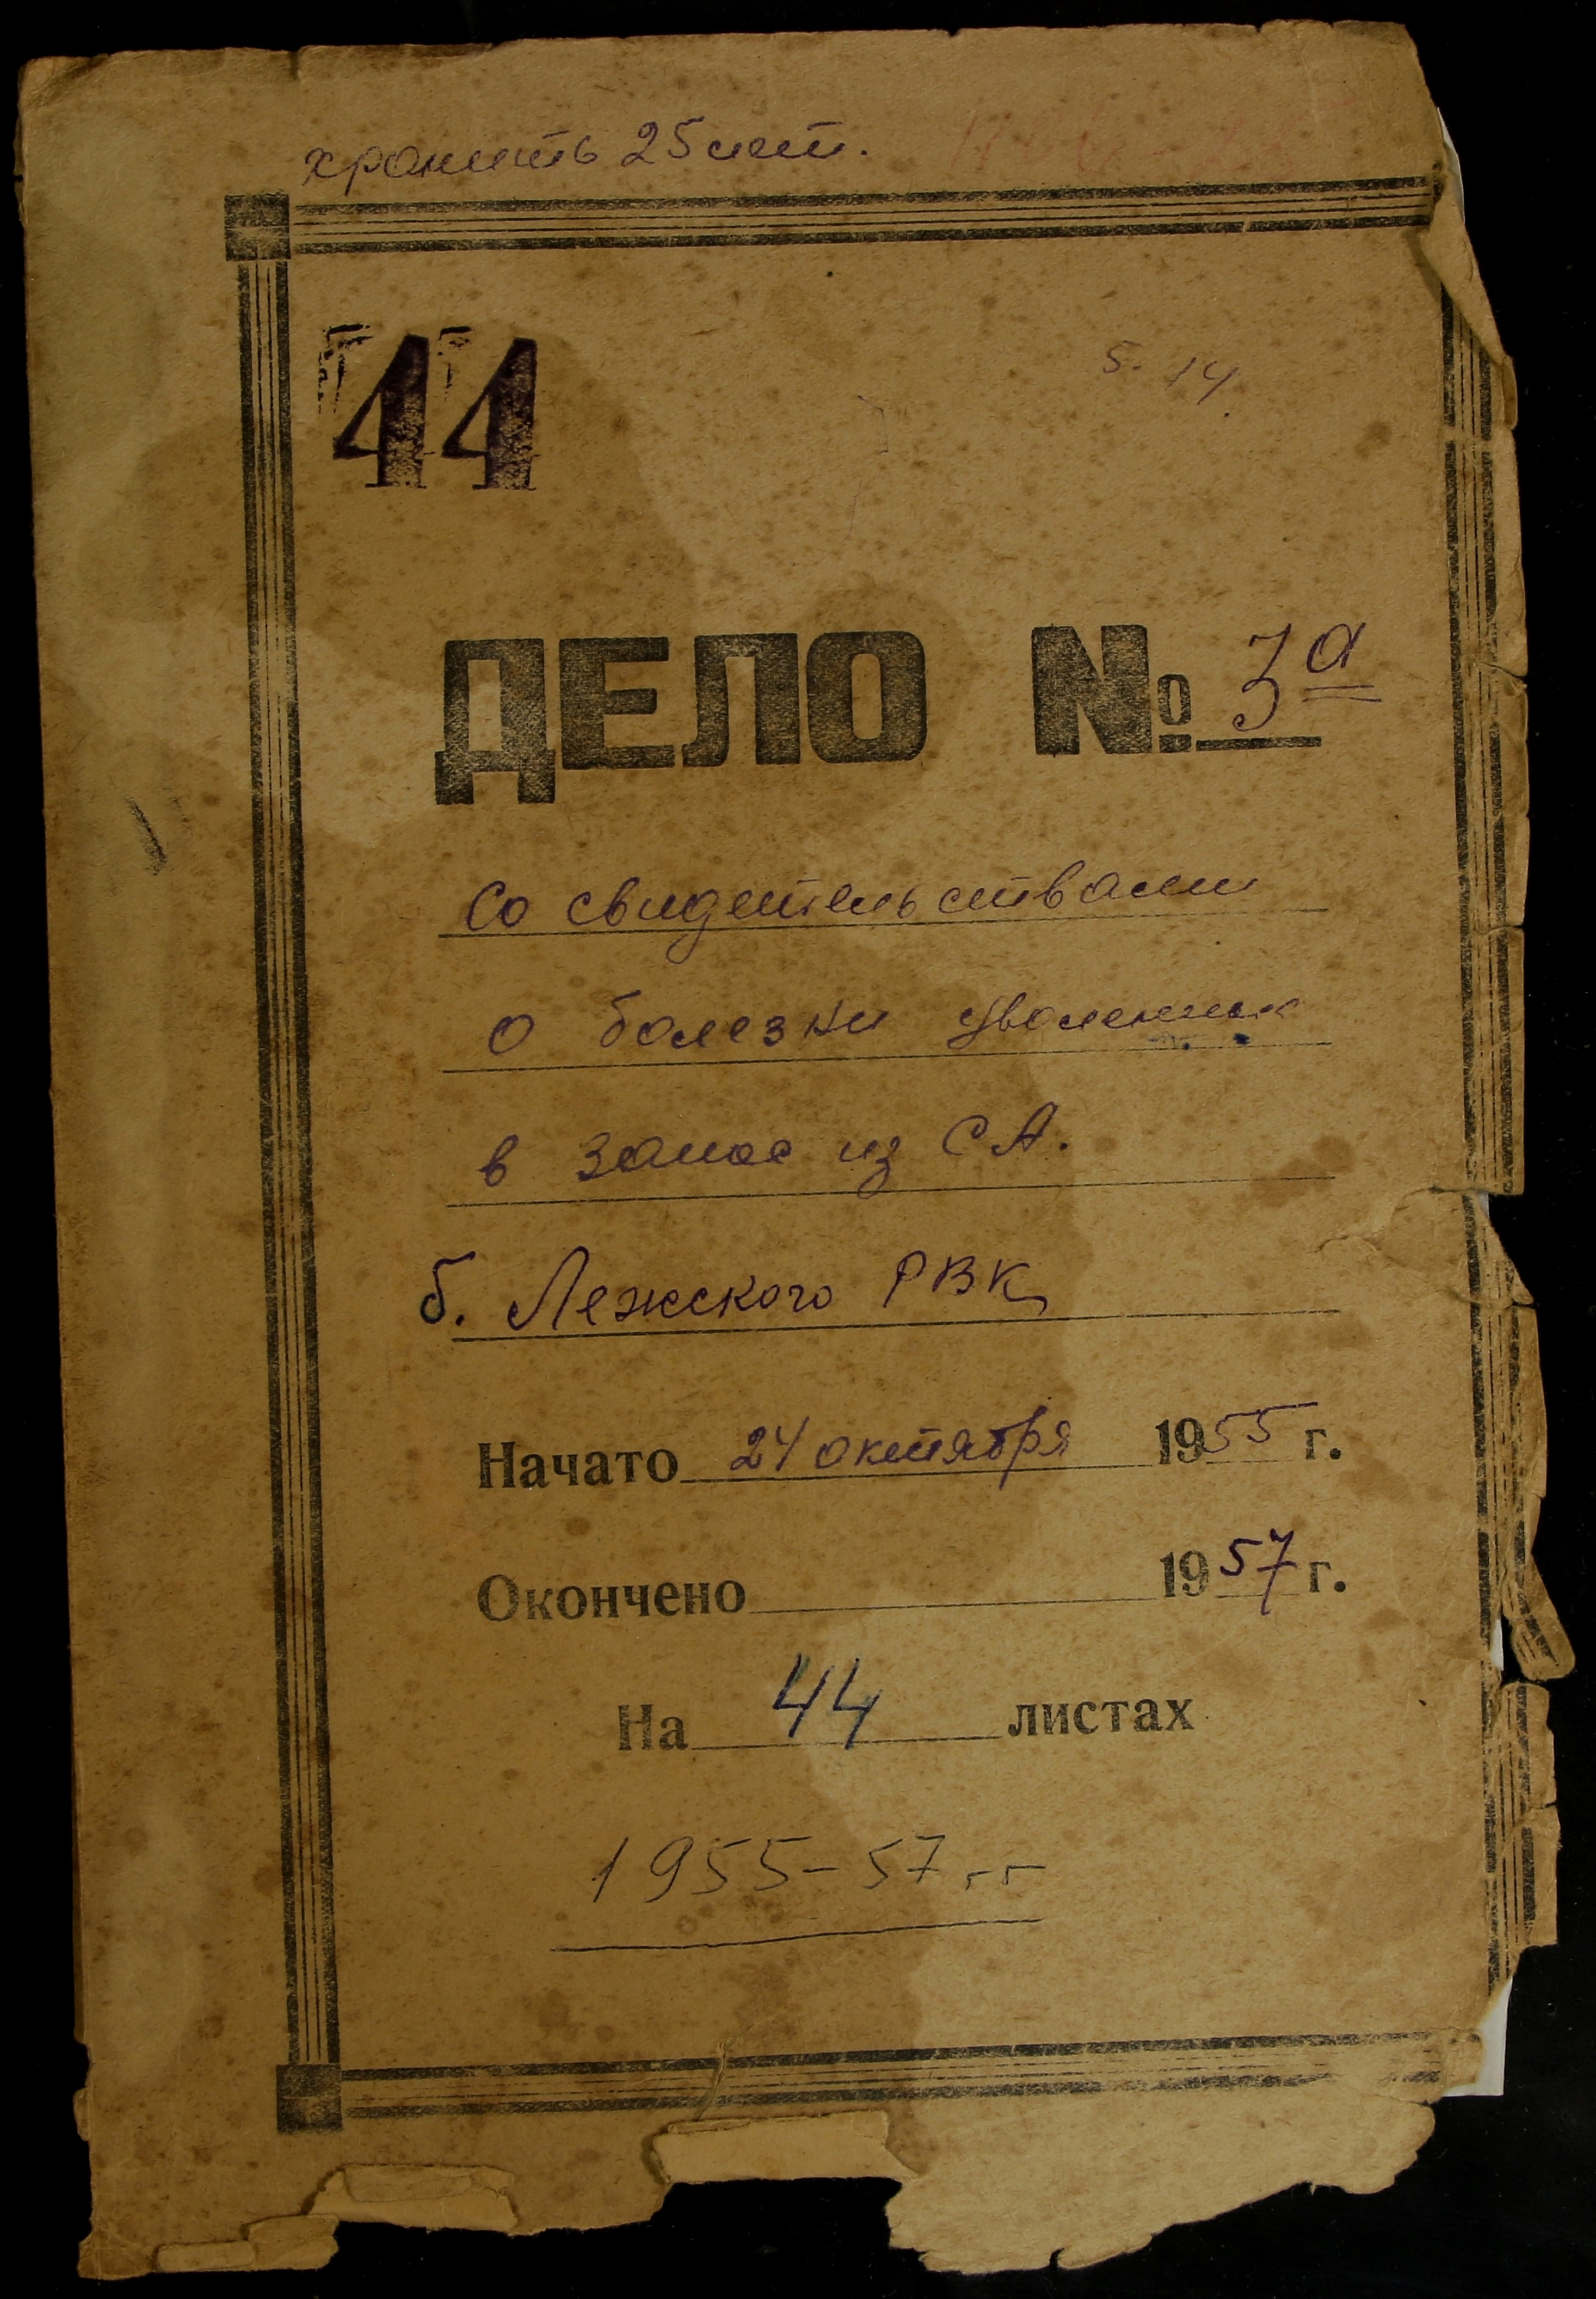 хранить 25 лет.
44
5. 14.
ДЕЛО № 3а
Со свидетельствами
о болезни уволенных
в запас из СА.
б. Лежского РВК
Начато 24 октября 1955 г.
Окончено 1957 г.
На 44 листах
1955-57 гг